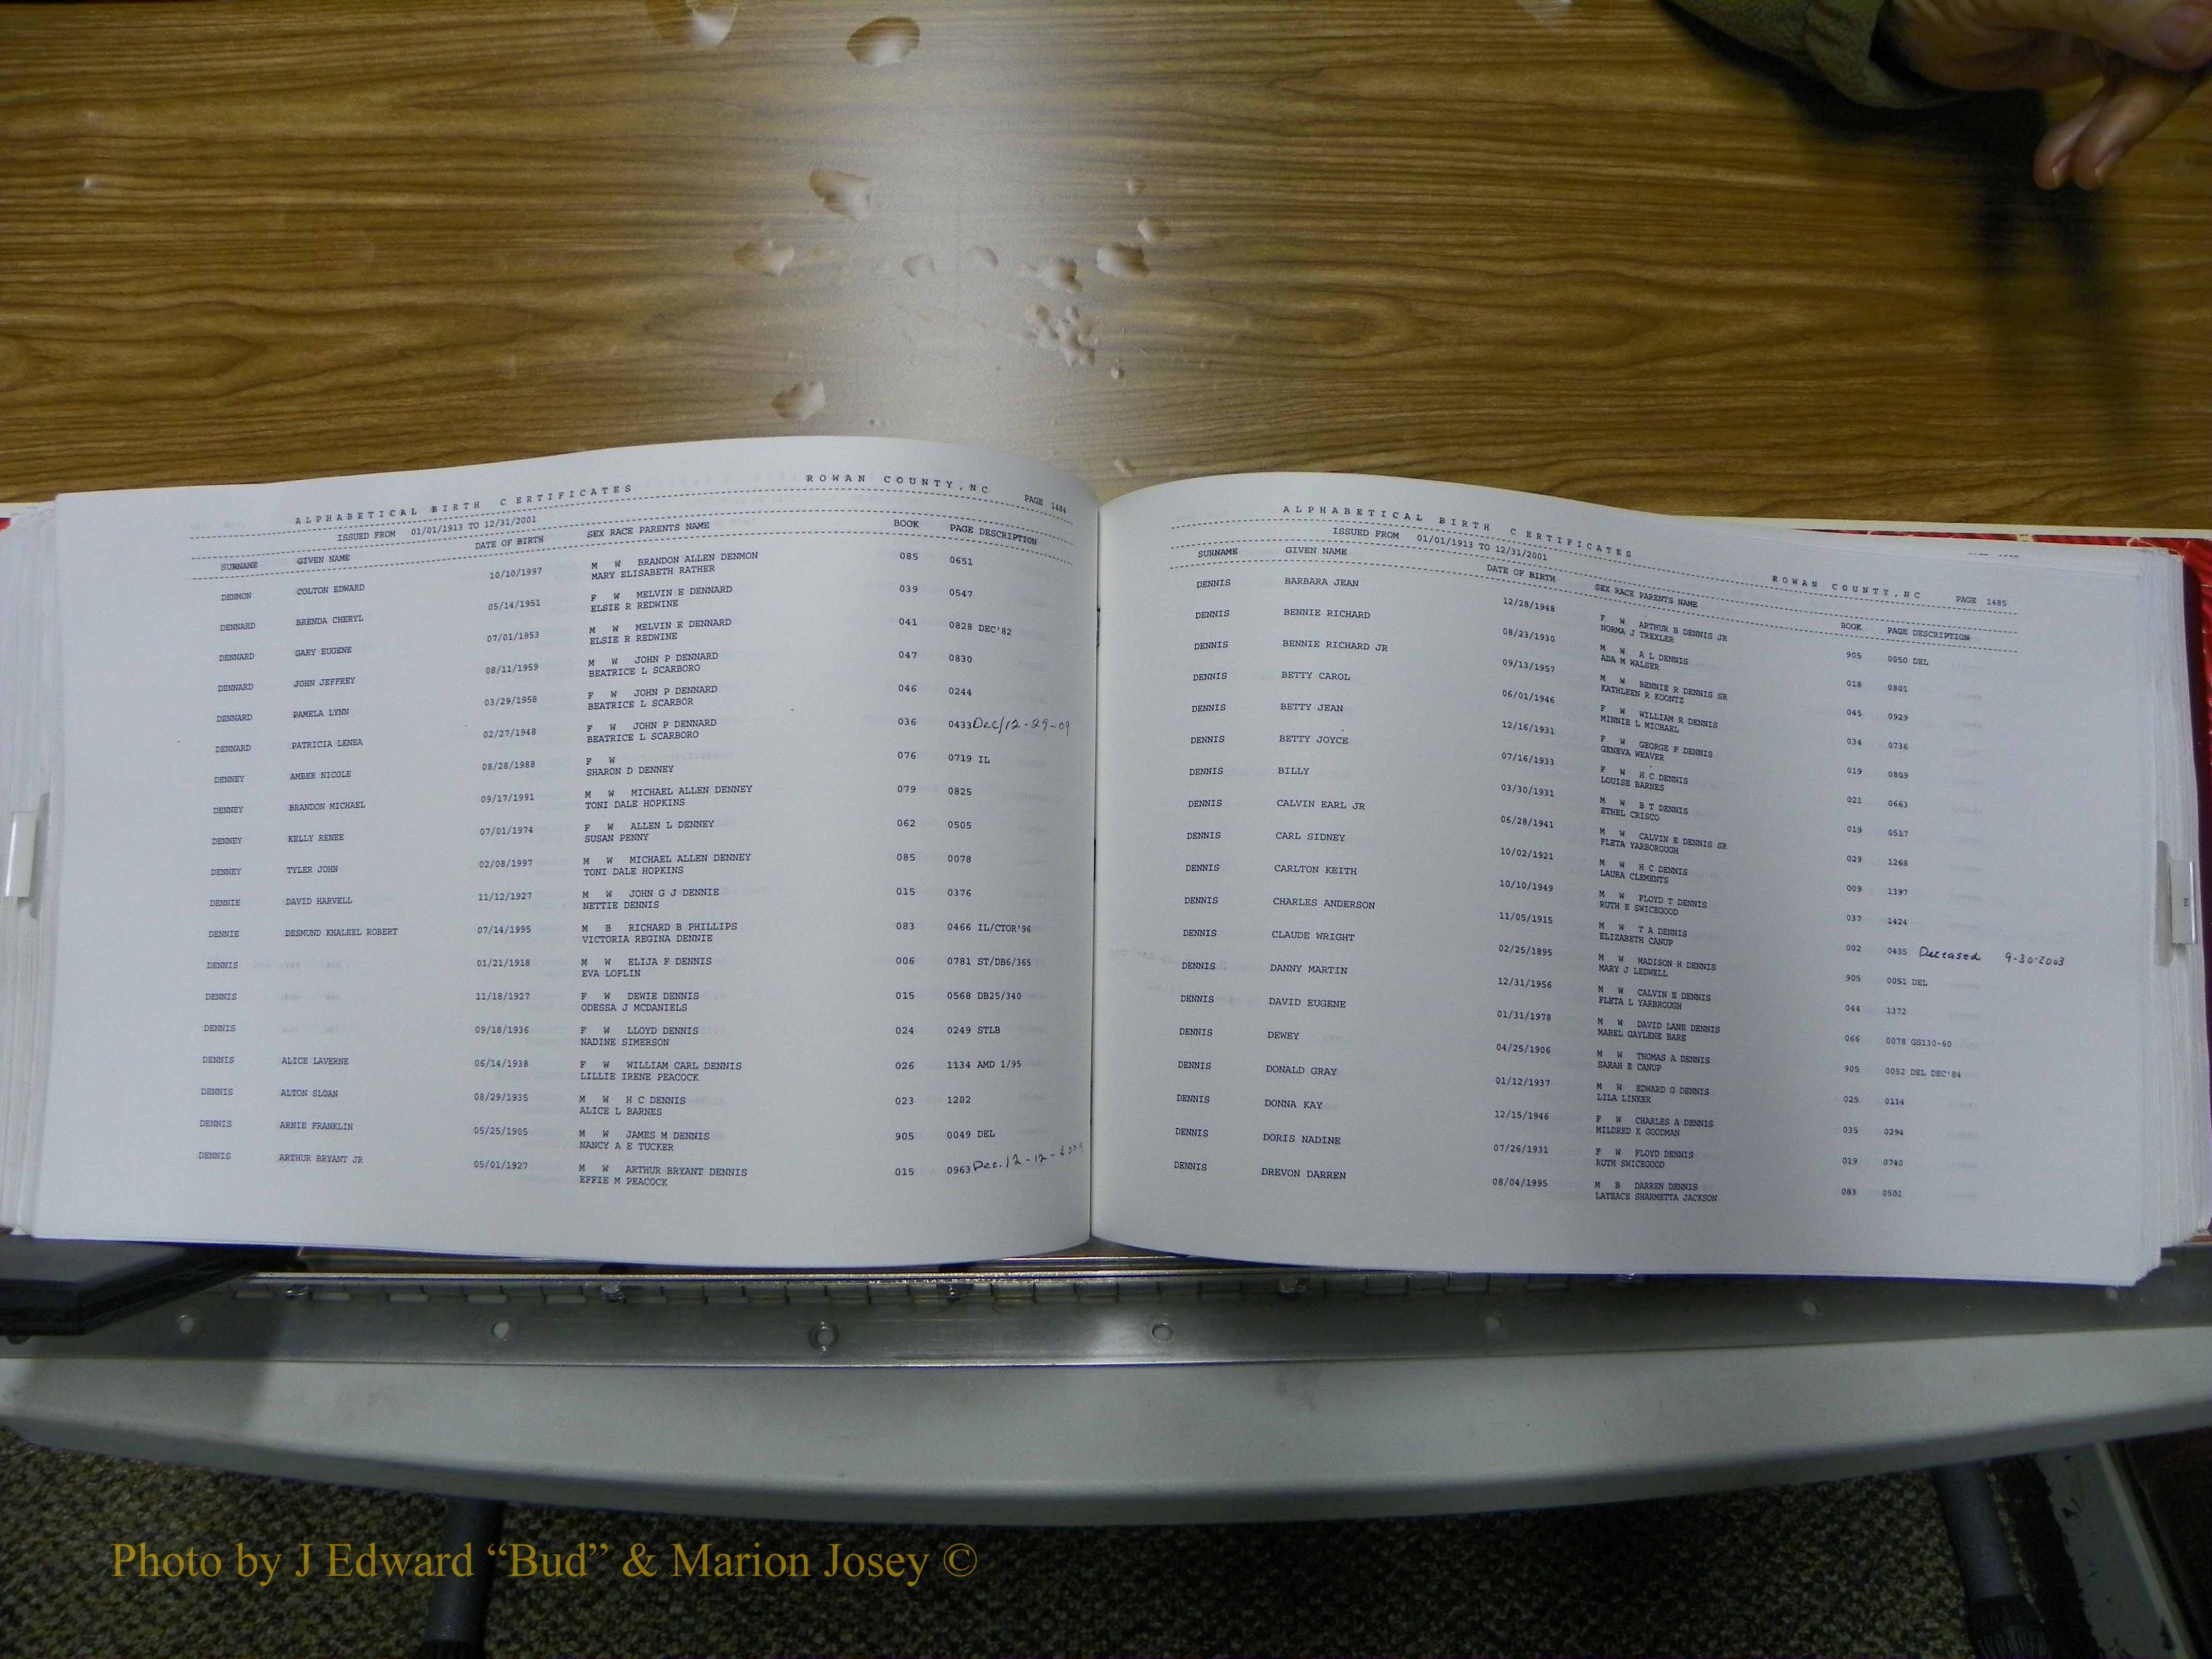 ALPHABETICAL BIRTH CERTIFICATES ROWAN COUNTY, NC PAGE 1484
ISSUED FROM 01/01/1913 TO 12/31/2001
SURNAME GIVEN NAME DATE OF BIRTH SEX RACE PARENTS NAME BOOK PAGE DESCRIPTION
DENMON COLTON EDWARD 10/10/1997 M W BRANDON ALLEN DENMON 085 0651
MARY ELISABETH RATHER
DENNARD BRENDA CHERYL 05/14/1951 F W MELVIN E DENNARD 039 0547
ELSIE R REDWINE
DENNARD GARY EUGENE 07/01/1953 M W MELVIN E DENNARD 041 0828 DEC'82
ELSIE R REDWINE
DENNARD JOHN JEFFREY 08/11/1959 M W JOHN P DENNARD 047 0830
BEATRICE L SCARBORO
DENNARD PAMELA LYNN 03/29/1958 F W JOHN P DENNARD 046 0244
BEATRICE L SCARBOR
DENNARD PATRICIA LENEA 02/27/1948 F W JOHN P DENNARD 036 0433 Dec/12-29-09
BEATRICE L SCARBORO
DENNEY AMBER NICOLE 08/28/1988 F W 076 0719 IL
SHARON D DENNEY
DENNEY BRANDON MICHAEL 09/17/1991 M W MICHAEL ALLEN DENNEY 079 0825
TONI DALE HOPKINS
DENNEY KELLY RENEE 07/01/1974 F W ALLEN L DENNEY 062 0505
SUSAN PENNY
DENNEY TYLER JOHN 02/08/1997 M W MICHAEL ALLEN DENNEY 085 0078
TONI DALE HOPKINS
DENNIE DAVID HARVELL 11/12/1927 M W JOHN G J DENNIE 015 0376
NETTIE DENNIS
DENNIE DESMUND KHALEEL ROBERT 07/14/1995 M B RICHARD B PHILLIPS 083 0466 IL/CTOR'96
VICTORIA REGINA DENNIE
DENNIS 01/21/1918 M W ELIJA F DENNIS 006 0781 ST/DB6/365
EVA LOFLIN
DENNIS 11/18/1927 F W DEWIE DENNIS 015 0568 DB25/340
ODESSA J MCDANIELS
DENNIS 09/18/1936 F W LLOYD DENNIS 024 0249 STLB
NADINE SIMERSON
DENNIS ALICE LAVERNE 06/14/1938 F W WILLIAM CARL DENNIS 026 1134 AMD 1/95
LILLIE IRENE PEACOCK
DENNIS ALTON SLOAN 08/29/1935 M W H C DENNIS 023 1202
ALICE L BARNES
DENNIS ARNIE FRANKLIN 05/25/1905 M W JAMES M DENNIS 905 0049 DEL
NANCY A E TUCKER
DENNIS ARTHUR BRYANT JR 05/01/1927 M W ARTHUR BRYANT DENNIS 015 0963 Dec. 12-12-2009
EFFIE M PEACOCK
ALPHABETICAL BIRTH CERTIFICATES ROWAN COUNTY, NC PAGE 1485
ISSUED FROM 01/01/1913 TO 12/31/2001
SURNAME GIVEN NAME DATE OF BIRTH SEX RACE PARENTS NAME BOOK PAGE DESCRIPTION
DENNIS BARBARA JEAN 12/28/1948 F W ARTHUR B DENNIS JR 905 0050 DEL
NORMA J TREXLER
DENNIS BENNIE RICHARD 08/23/1930 M W A L DENNIS 018 0801
ADA M WALSER
DENNIS BENNIE RICHARD JR 09/13/1957 M W BENNIE R DENNIS SR 045 0929
KATHLEEN R KOONTZ
DENNIS BETTY CAROL 06/01/1946 F W WILLIAM R DENNIS 034 0736
MINNIE L MICHAEL
DENNIS BETTY JEAN 12/16/1931 F W GEORGE F DENNIS 019 0809
GENEVA WEAVER
DENNIS BETTY JOYCE 07/16/1933 F W H C DENNIS 021 0663
LOUISE BARNES
DENNIS BILLY 03/30/1931 M W B T DENNIS 019 0517
ETHEL CRISCO
DENNIS CALVIN EARL JR 06/28/1941 M W CALVIN E DENNIS SR 029 1268
FLETA YARBOROUGH
DENNIS CARL SIDNEY 10/02/1921 M W H C DENNIS 009 1397
LAURA CLEMENTS
DENNIS CARLTON KEITH 10/10/1949 M W FLOYD T DENNIS 037 1424
RUTH E SWICEGOOD
DENNIS CHARLES ANDERSON 11/05/1915 M W T A DENNIS 002 0435 Deceased 9-30-2003
ELIZABETH CANUP
DENNIS CLAUDE WRIGHT 02/25/1895 M W MADISON H DENNIS 905 0051 DEL
MARY J LEDWELL
DENNIS DANNY MARTIN 12/31/1956 M W CALVIN E DENNIS 044 1372
FLETA L YARBROUGH
DENNIS DAVID EUGENE 01/31/1978 M W DAVID LANE DENNIS 066 0078 GS130-60
MABEL GAYLENE BARE
DENNIS DEWEY 04/25/1906 M W THOMAS A DENNIS 905 0052 DEL DEC'84
SARAH E CANUP
DENNIS DONALD GRAY 01/12/1937 M W EDWARD G DENNIS 025 0114
LILA LINKER
DENNIS DONNA KAY 12/15/1946 F W CHARLES A DENNIS 035 0294
MILDRED K GOODMAN
DENNIS DORIS NADINE 07/26/1931 F W FLOYD DENNIS 019 0740
RUTH SWICEGOOD
DENNIS DREVON DARREN 08/04/1995 M B DARREN DENNIS 083 0501
LATEACE SHARMETTA JACKSON
Photo by J Edward “Bud” & Marion Josey ©